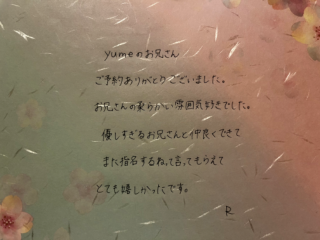 yumeのお兄さん
ご予約ありがとうございました。
お兄さんの柔らかい雰囲気好きでした。
優しすぎるお兄さんと仲良くできて
また指名するねって言ってもらえて
とても嬉しかったです。
R